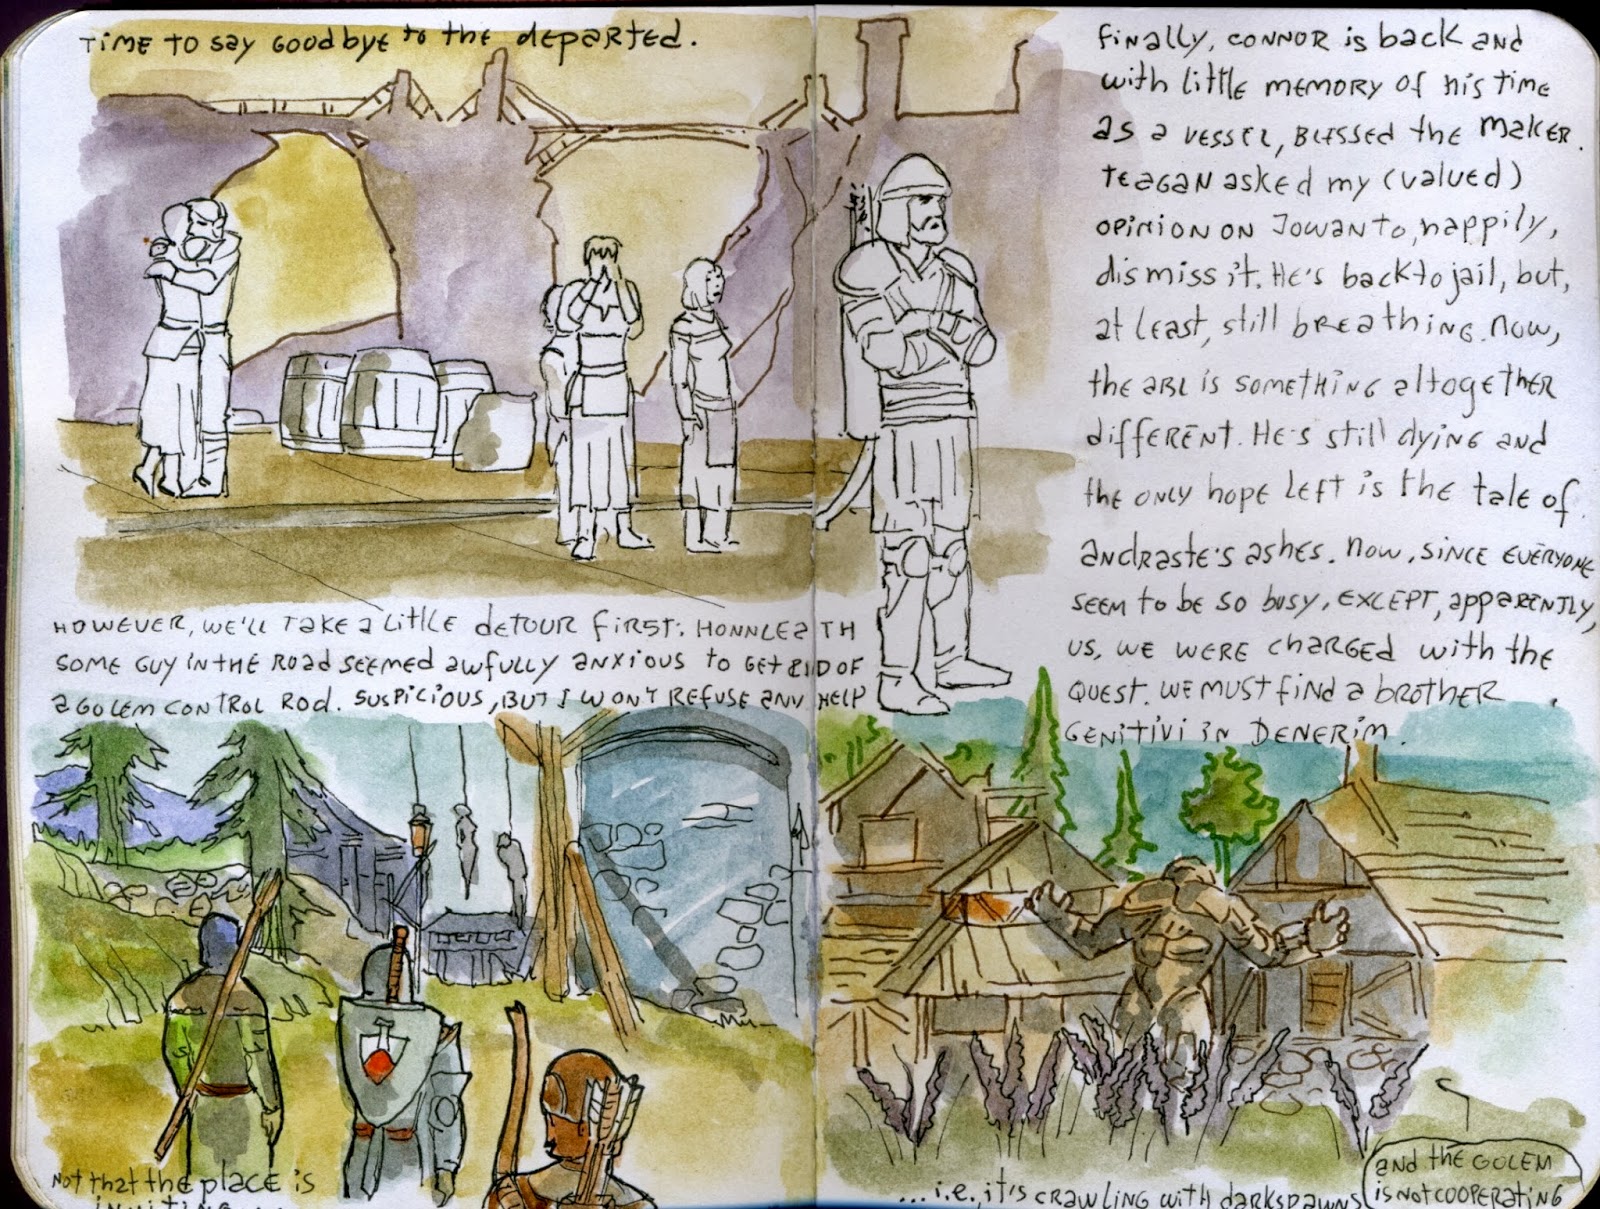 TIME TO SAY GOODBYE TO THE DEPARTED.
FINALLY, CONNOR IS BACK AND
WITH LITTLE MEMORY OF HIS TIME
AS A VESSEL, BLESSED THE MAKER.
TEAGAN ASKED MY (VALUED)
OPINION ON JOWAN TO, HAPPILY,
DISMISS IT. HE'S BACK TO JAIL, BUT,
AT LEAST, STILL BREATHING. NOW,
THE ARL IS SOMETHING ALTOGETHER
DIFFERENT. HE'S STILL DYING AND
THE ONLY HOPE LEFT IS THE TALE OF
ANDRASTE'S ASHES. NOW, SINCE EVERYONE
SEEM TO BE SO BUSY, EXCEPT, APPARENTLY,
US, WE WERE CHARGED WITH THE
QUEST. WE MUST FIND A BROTHER
GENITIVI IN DENERIM.
HOWEVER, WE'LL TAKE A LITTLE DETOUR FIRST: HONNLEATH
SOME GUY IN THE ROAD SEEMED AWFULLY ANXIOUS TO GET RID OF
A GOLEM CONTROL ROD. SUSPICIOUS, BUT I WON'T REFUSE ANY HELP
NOT THAT THE PLACE IS
INVITING...
...I.E. IT'S CRAWLING WITH DARKSPAWNS
AND THE GOLEM
IS NOT COOPERATING